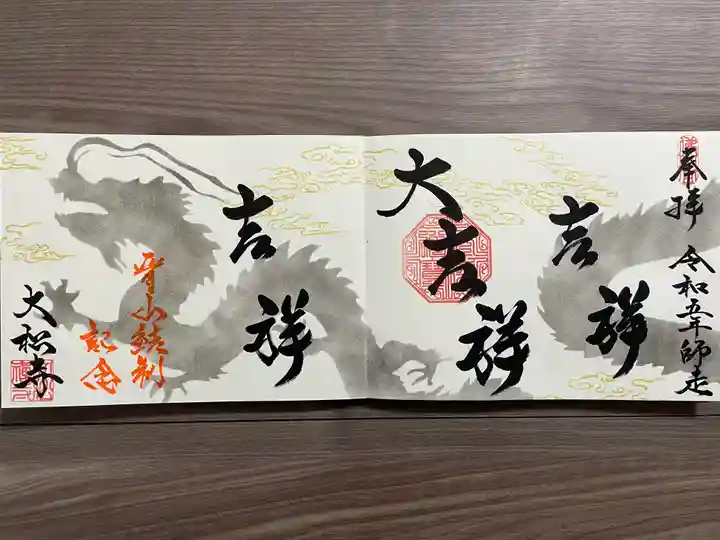 奉拝 令和五年師走
吉祥
大吉祥
吉祥
晋山結制
記念
大和寺